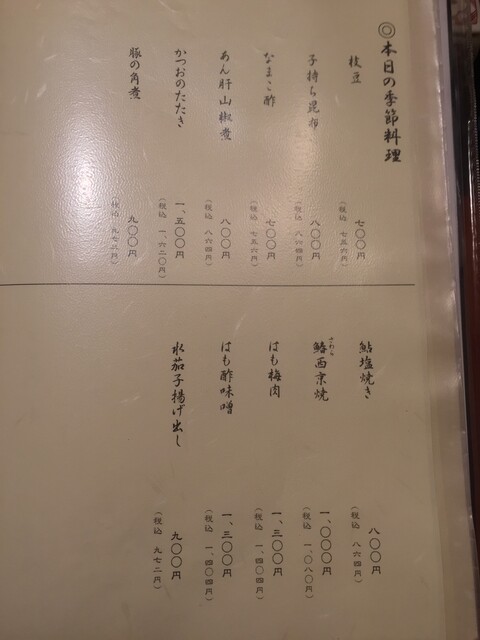 ◎本日の季節料理
枝豆
七〇〇円
(税込 七五六円)
子持ち昆布
八〇〇円
(税込 八六四円)
なまこ酢
七〇〇円
(税込 七五六円)
あん肝山椒煮
八〇〇円
(税込 八六四円)
かつおのたたき
一、五〇〇円
(税込 一、六二〇円)
豚の角煮
九〇〇円
(税込 九七二円)
鮎塩焼き
八〇〇円
(税込 八六四円)
鰆西京焼
さわら
一、〇〇〇円
(税込 一、〇八〇円)
はも梅肉
一、三〇〇円
(税込 一、四〇四円)
はも酢味噌
一、三〇〇円
(税込 一、四〇四円)
水茄子揚げ出し
九〇〇円
(税込 九七二円)